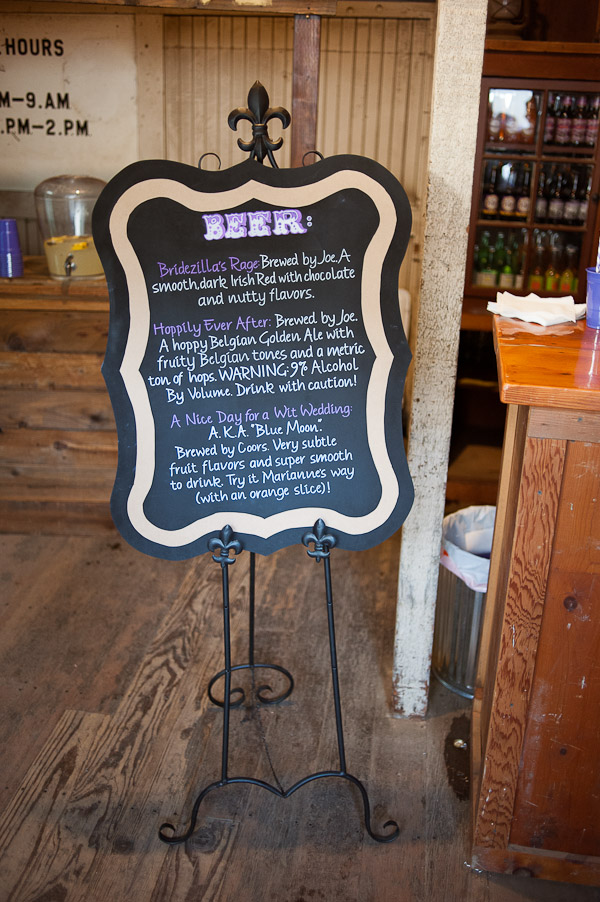 HOURS
M–9.AM
.PM–2.PM
BEER:
Bridezilla's Rage: Brewed by Joe. A
smooth, dark Irish Red with chocolate
and nutty flavors.
Hoppily Ever After: Brewed by Joe.
A hoppy Belgian Golden Ale with
fruity Belgian tones and a metric
ton of hops. WARNING: 9% Alcohol
By Volume. Drink with caution!
A Nice Day for a Wit Wedding:
A.K.A. "Blue Moon".
Brewed by Coors. Very subtle
fruit flavors and super smooth
to drink. Try it Marianne's way
(with an orange slice)!